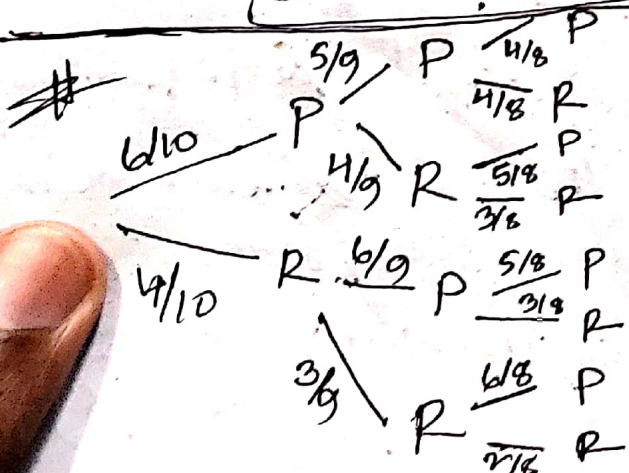 #
5/9 P 4/8 P
4/8 R
6/10 P
4/9 R 5/8 P
3/8 R
4/10 R 6/9 P 5/8 P
3/8 R
3/9 R 6/8 P
2/8 R